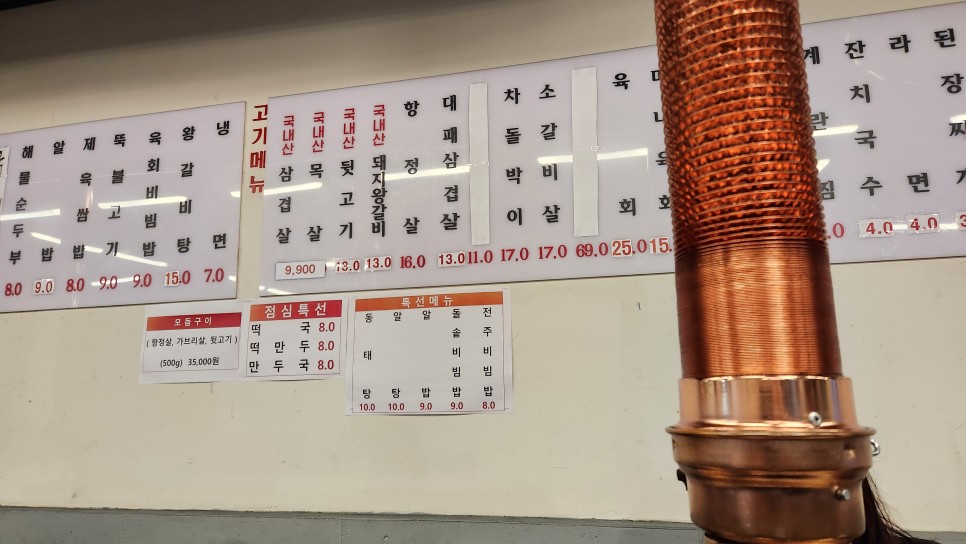 해물순두부 8.0
알밥 9.0
제육쌈밥 8.0
뚝불고기 9.0
육회비빔밥 9.0
왕갈비탕 15.0
냉면 7.0
고기메뉴
국내산 삼겹살 9,900
국내산 목살
국내산 뒷고기 13.0
국내산 돼지왕갈비 13.0
항정살 16.0
대패삼겹살 13.0
11.0
차돌박이 17.0
소갈비살 17.0
69.0
육회 25.0
계란찜
잔치국수 4.0
라면 4.0
된장찌
모둠구이
( 항정살, 가브리살, 뒷고기 )
(500g) 35,000원
점심특선
떡국 8.0
떡만두 8.0
만두국 8.0
특선메뉴
동태탕 10.0
알탕 10.0
알밥 9.0
돌솥비빔밥 9.0
전주비빔밥 8.0